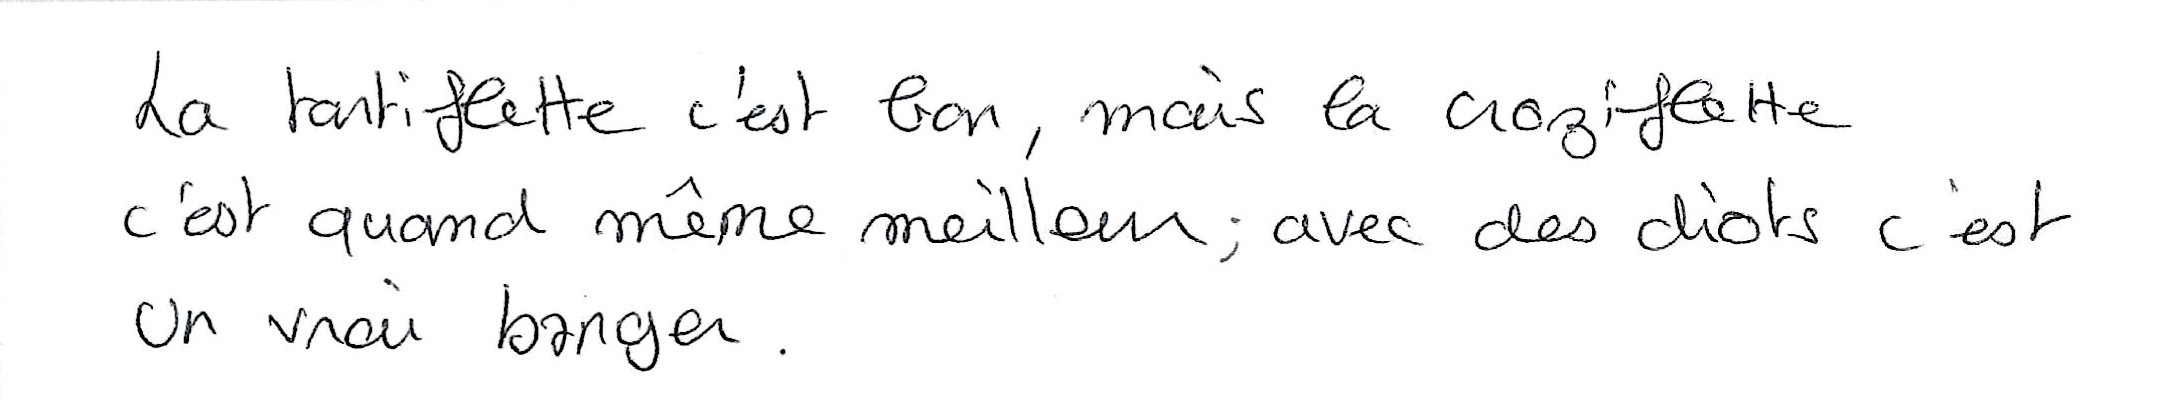 La tartiflette c'est bon, mais la croziflette
c'est quand même meilleur; avec des diots c'est
un vrai banger.